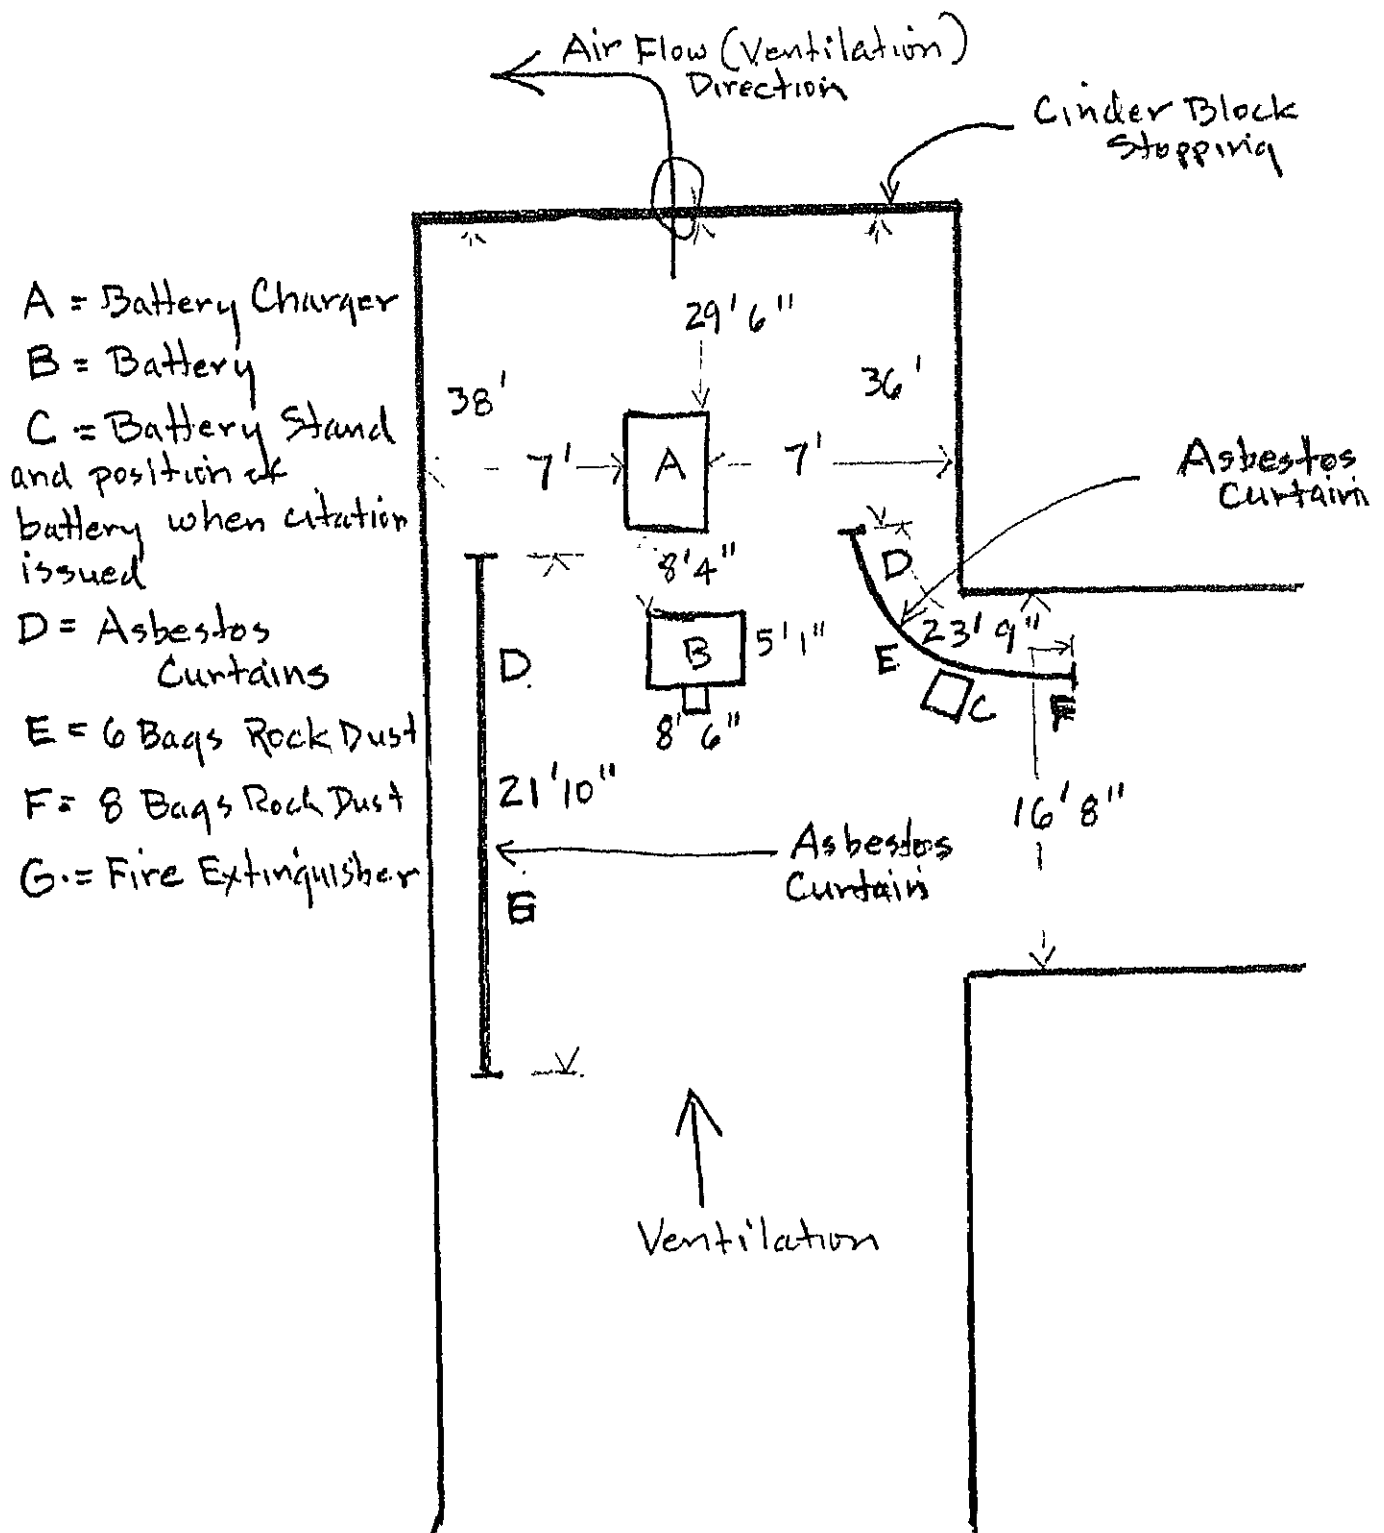 Air Flow (Ventilation)
Direction
Cinder Block
Stopping
A = Battery Charger
B = Battery
C = Battery Stand
and position of
battery when citation
issued
D = Asbestos
Curtains
E = 6 Bags Rock Dust
F = 8 Bags Rock Dust
G. = Fire Extinguisher
29'6"
38'
36'
7'
A
7'
Asbestos
Curtain
8'4"
D
23'9"
D
B
5'1"
E
C
F
8'6"
21'10"
16'8"
Asbestos
Curtain
Ventilation